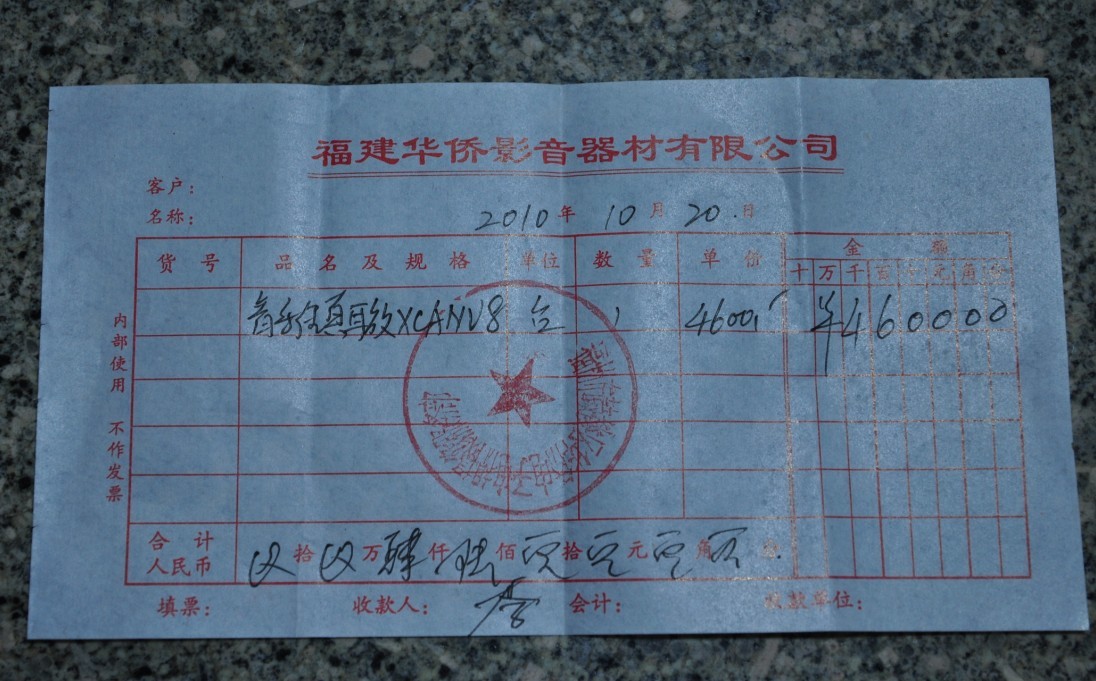 福建华侨影音器材有限公司
客户：
名称： 2010年 10月 20日
货号 品名及规格 单位 数量 单价 金额
十 万 千 百 十 元 角 分
XCANV8 台 1 4600 ¥460000
内部使用 不作发票
合计 人民币 拾 万 肆仟 陆佰 零拾 零元 零角 零分
填票： 收款人： 会计： 收款单位：